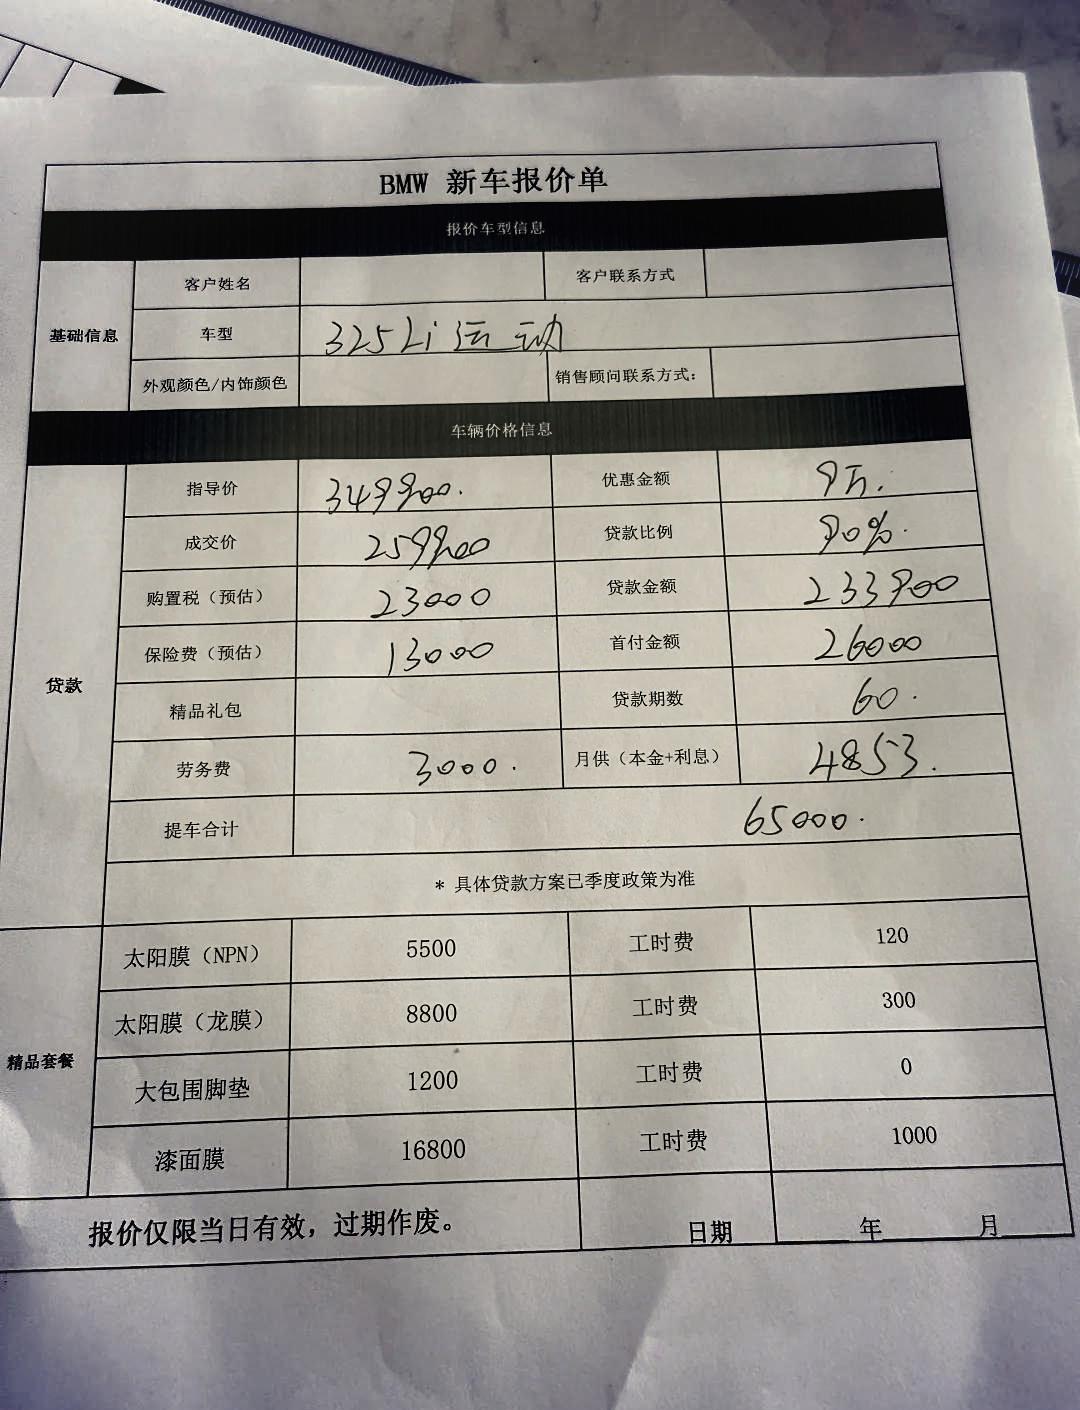 BMW 新车报价单
报价车型信息
基础信息
客户姓名 客户联系方式
车型 325Li 运动
外观颜色/内饰颜色 销售顾问联系方式:
车辆价格信息
贷款
指导价 349900. 优惠金额 9万.
成交价 259900 贷款比例 90%.
购置税（预估） 23000 贷款金额 233900
保险费（预估） 13000 首付金额 26000
精品礼包 贷款期数 60.
劳务费 3000. 月供（本金+利息） 4853.
提车合计 65000.
* 具体贷款方案已季度政策为准
精品套餐
太阳膜（NPN） 5500 工时费 120
太阳膜（龙膜） 8800 工时费 300
大包围脚垫 1200 工时费 0
漆面膜 16800 工时费 1000
报价仅限当日有效，过期作废。 日期 年 月